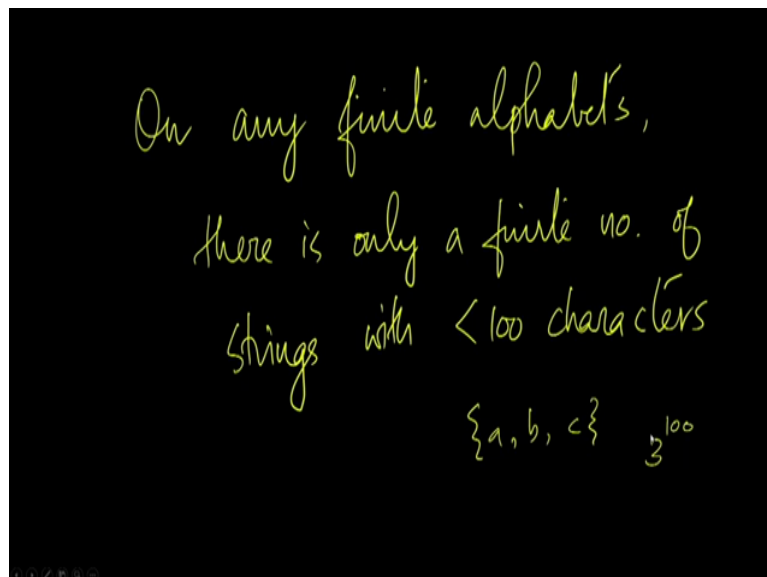 On any finite alphabets,
there is only a finite no. of
strings with <100 characters
{a, b, c} 3^100